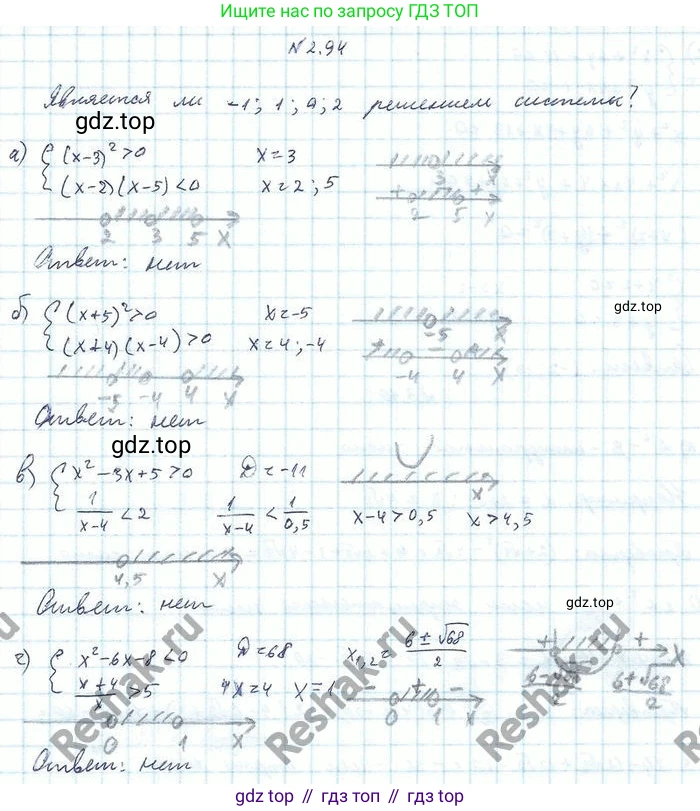 Ищет нас по запросу ГДЗ ТОП
№ 2.94
Является ли -1; 1; 0; 2 решением системы?
gdz.top
а) { (x-3)² > 0 x = 3
(x-2)(x-5) < 0 x = 2; 5
3 x
+ - + 2 5 x
2 3 5 x
Ответ: нет
б) { (x+5)² > 0 x = -5
(x+4)(x-4) > 0 x = 4; -4
gdz.top
-5 x
+ - + -4 4 x
-5 -4 4 x
Ответ: нет
gdz.top
в) { x² - 3x + 5 > 0 D = -11
1/(x-4) < 2 1/(x-4) < 1/0,5 x-4 > 0,5 x > 4,5
x
4,5 x
Ответ: нет
gdz.top
г) { x² - 6x - 8 < 0 D = 68 x₁,₂ = (6 ± √68)/2
(x+4)/x > 5 4x = 4 x = 1
- + - 0 1 x
+ - + x
(6-√68)/2 (6+√68)/2
0 1 x
Ответ: нет
Reshak.ru
Reshak.ru
Reshak.ru
gdz.top // гдз.топ // gdz.top